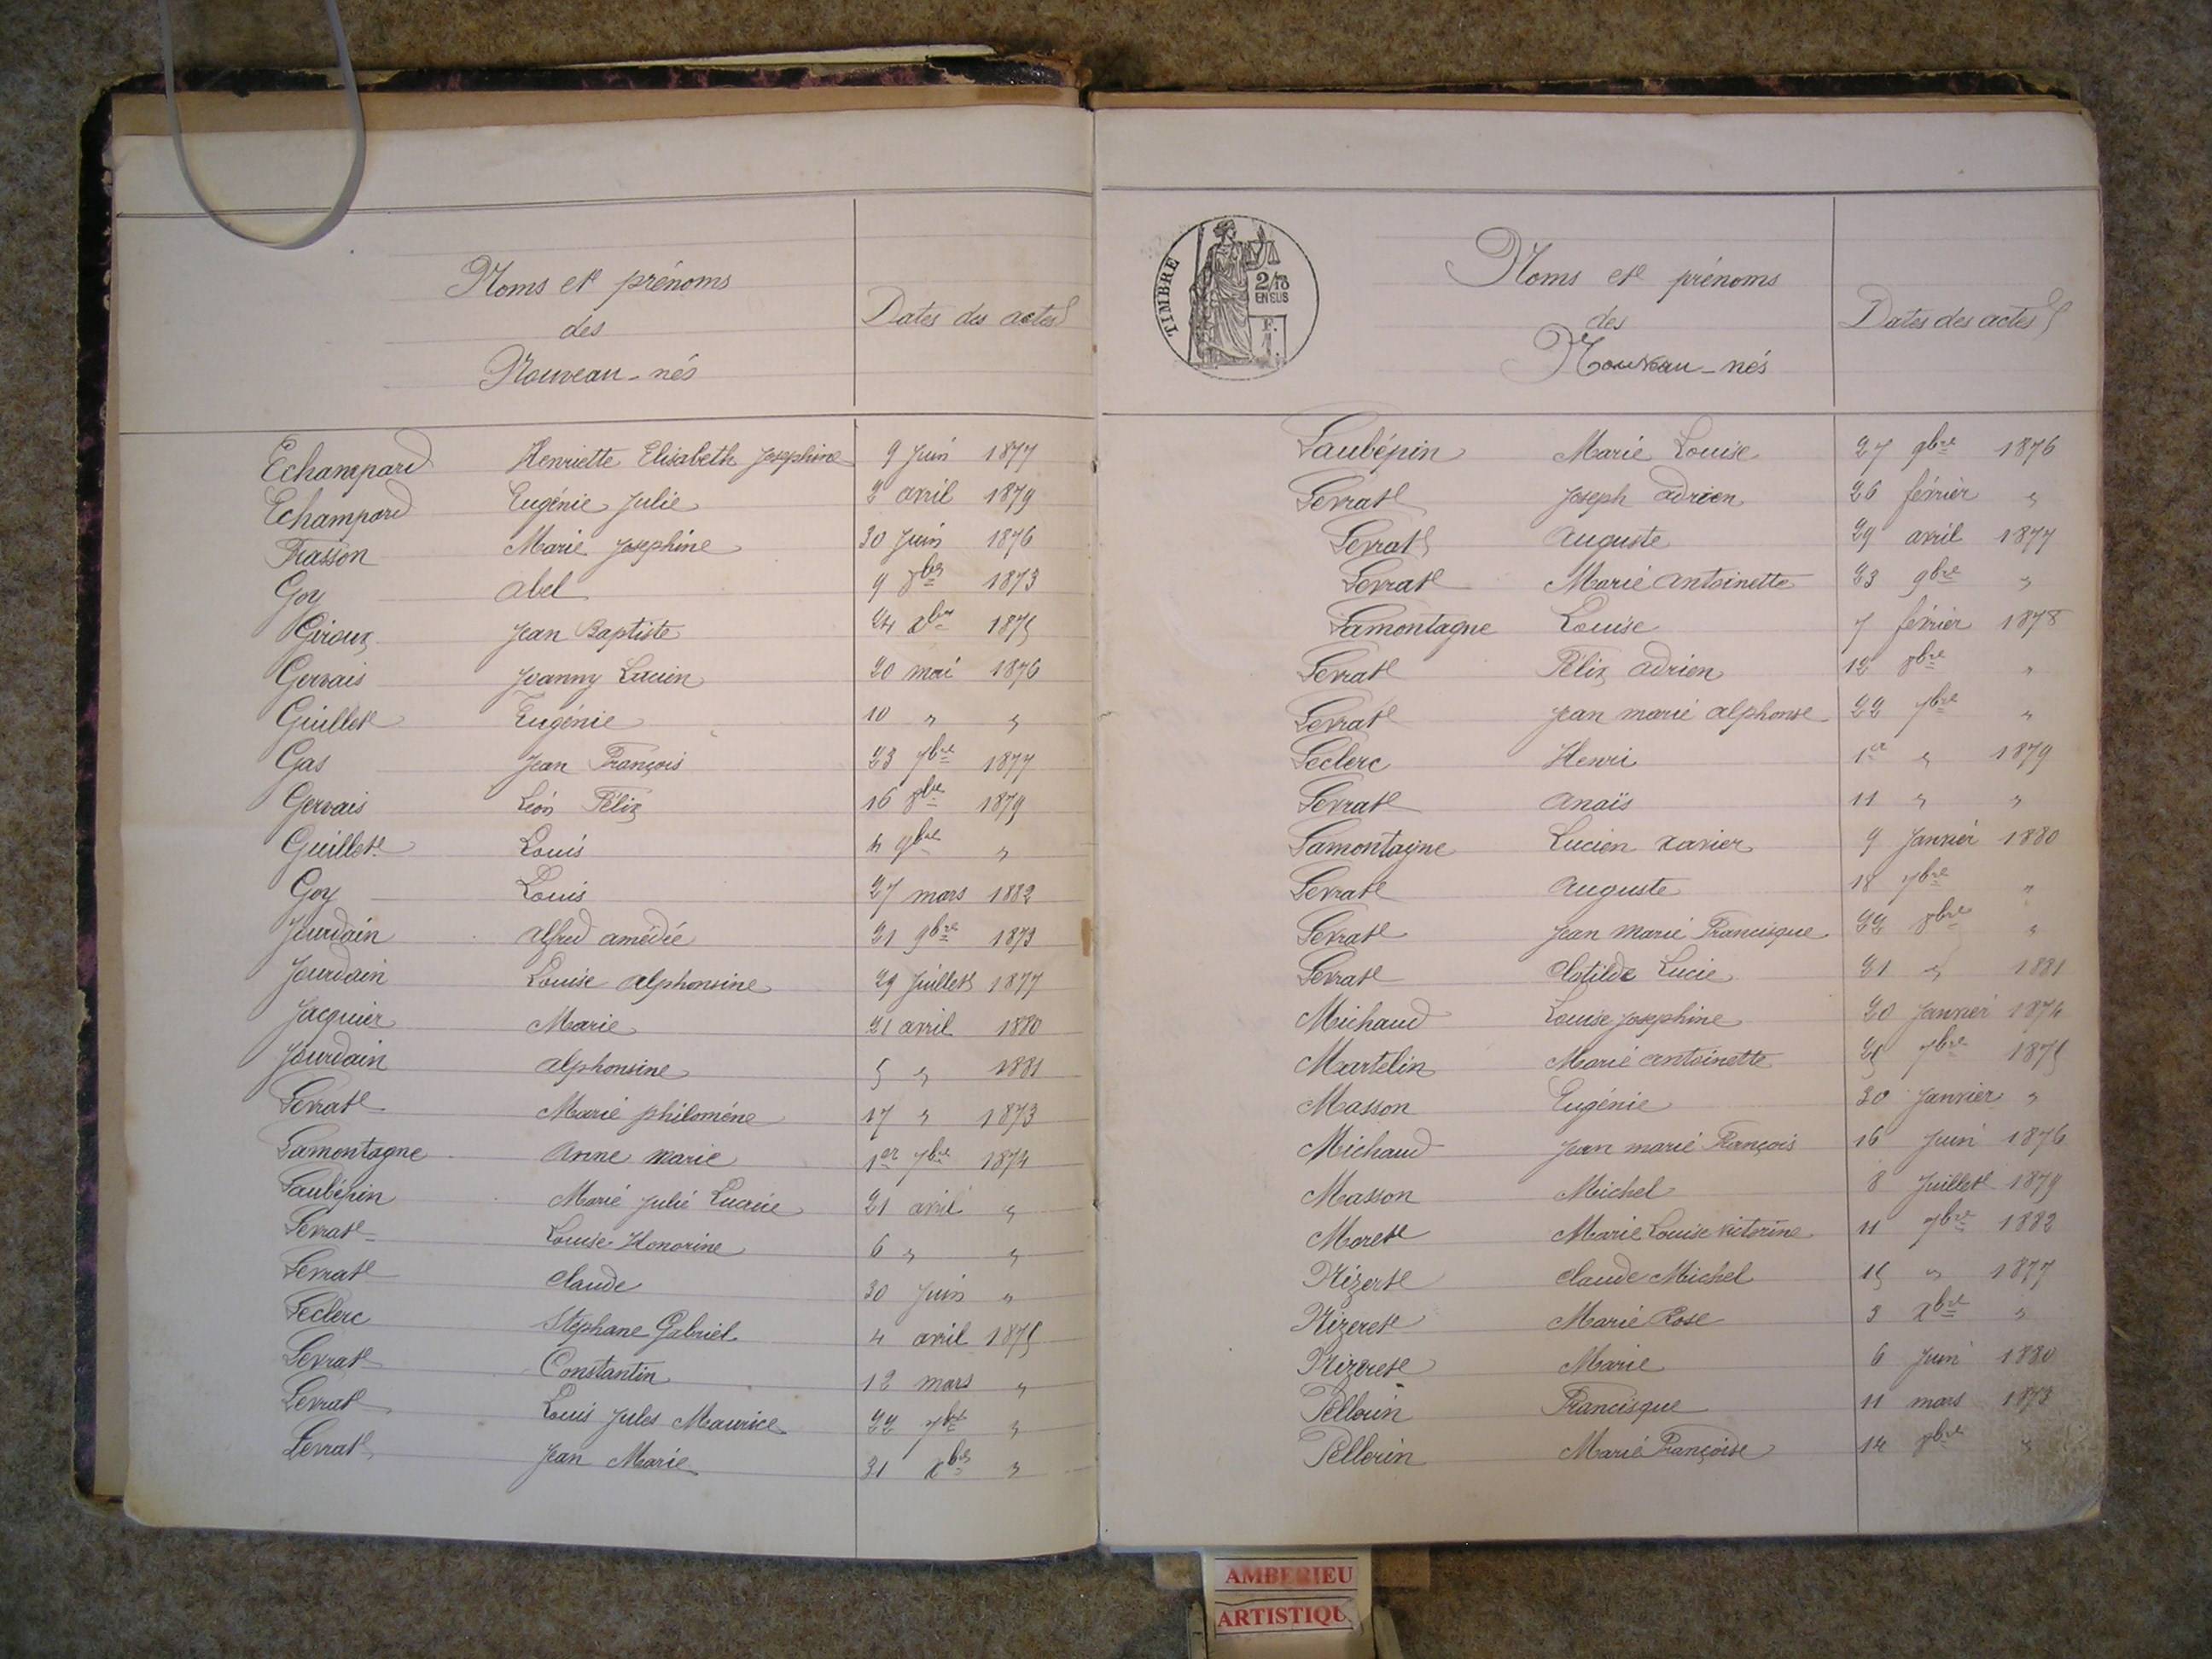 Noms et prénoms
des
Nouveau-nés
Dates des actes
Echampard Henriette Elisabeth Josephine 9 Juin 1877
Echampard Eugénie Julie 2 avril 1879
Frasson Marie Josephine 30 Juin 1876
Goy Abel 9 8bre 1873
Giroux Jean Baptiste 24 Xbre 1875
Gervais Joanny Lucien 20 mai 1876
Guillet Eugénie 10 " "
Gas Jean François 23 7bre 1877
Gervais Léon Félix 16 8bre 1879
Guillet Louis 4 9bre "
Goy Louis 27 mars 1882
Jourdain Alfred amédée 21 9bre 1873
Jourdain Louise Alphonsine 29 Juillet 1877
Jacquier Marie 21 avril 1880
Jourdain Alphonsine 5 " 1881
Levrat Marie philomène 17 " 1873
Lamontagne Anne Marie 1er 7bre 1874
Laubépin Marie Julie Lucie 21 avril "
Levrat Louise Honorine 6 " "
Levrat Claude 30 Juin "
Leclerc Stéphane Gabriel 4 avril 1875
Levrat Constantin 12 mars "
Levrat Louis Jules Maurice 22 7bre "
Levrat Jean Marie 31 Xbre "
TIMBRE
2/10
EN SUS
F.
1.
Noms et prénoms
des
Nouveau-nés
Dates des actes
Laubépin Marie Louise 27 9bre 1876
Levrat Joseph Adrien 26 février "
Levrat Auguste 29 avril 1877
Levrat Marie Antoinette 23 9bre "
Lamontagne Louise 7 février 1878
Levrat Félix Adrien 12 8bre "
Levrat Jean marie alphonse 22 7bre "
Leclerc Henri 1er " 1879
Levrat Anaïs 11 " "
Lamontagne Lucien Xavier 9 Janvier 1880
Levrat Auguste 18 7bre "
Levrat Jean Marie Francisque 22 8bre "
Levrat Clotilde Lucie 21 " 1881
Michaud Louise Josephine 20 Janvier 1874
Martelin Marie Antoinette 25 7bre 1875
Masson Eugénie 30 Janvier "
Michaud Jean marie François 16 Juin 1876
Masson Michel 8 Juillet 1879
Moret Marie Louise Victorine 11 7bre 1882
Nizeret Claude Michel 15 " 1877
Nizeret Marie Rose 3 Xbre "
Nizeret Marie 6 Juin 1880
Pellerin Francisque 11 mars 1873
Pellerin Marie Françoise 14 8bre "
AMBERIEU
ARTISTIQU